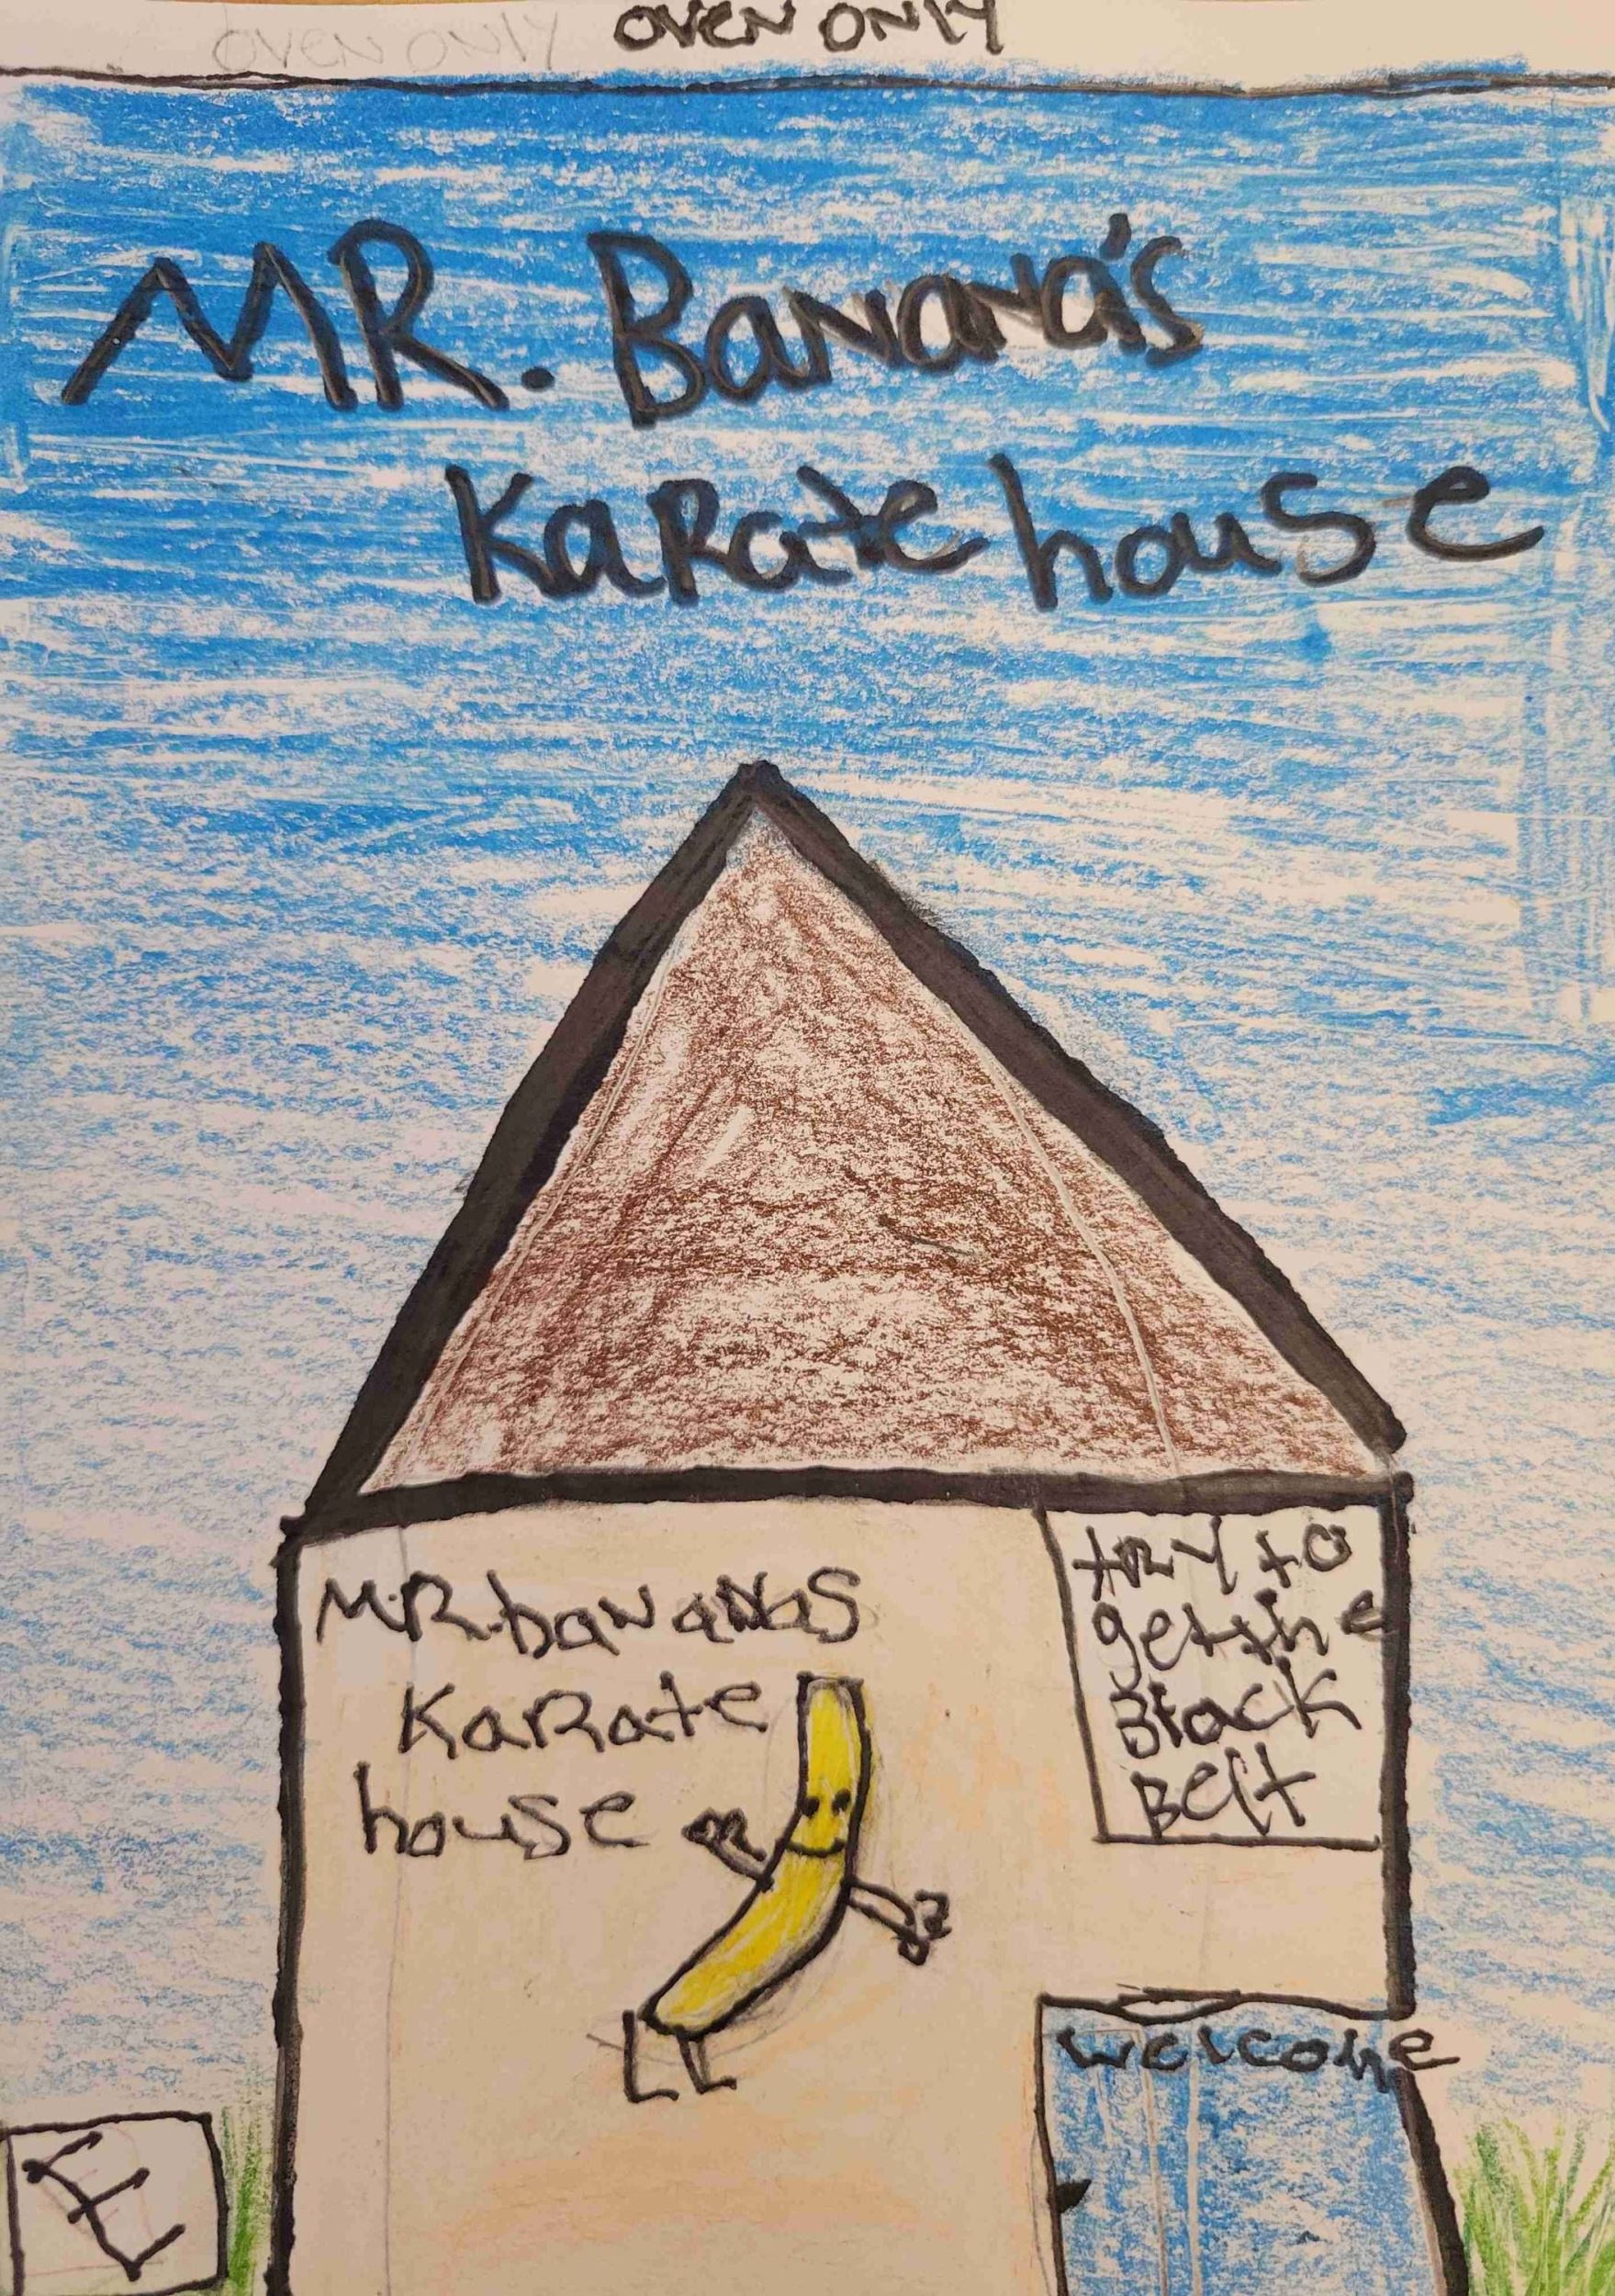 OVEN ONLY OVEN ONLY
MR. Banana's
Karate house
MR. bananas
Karate
house
try to
get the
Black
Belt
welcome